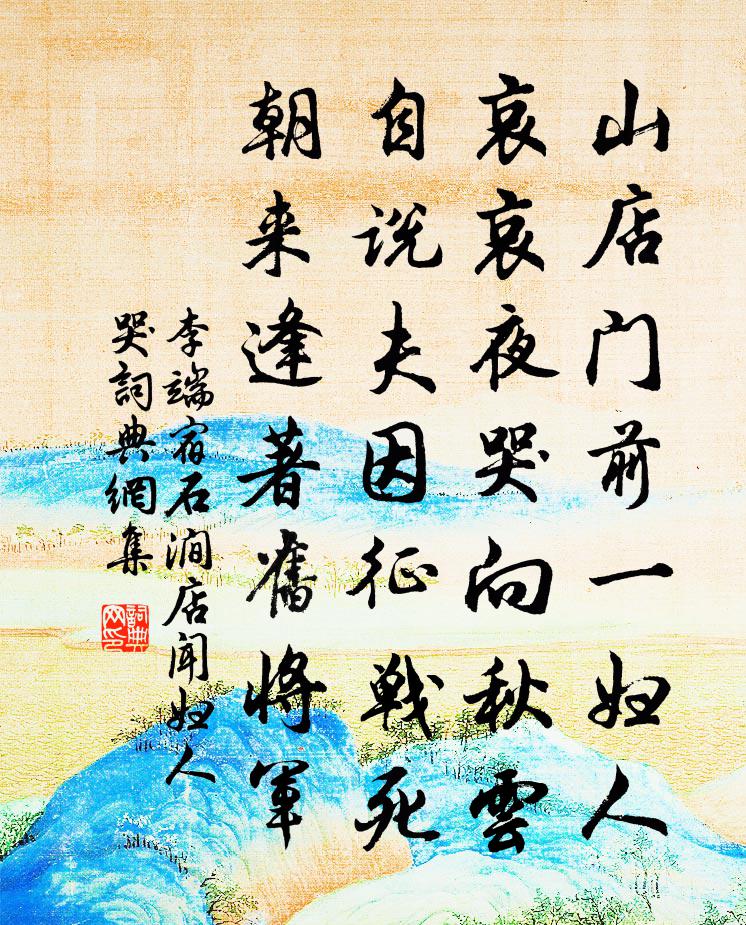 山店门前一妇人
哀哀夜哭向秋雲
自说夫因征戦死
朝来逢著舊將军
李端宿石涧店闻妇人
哭詞典網集
詞典網印